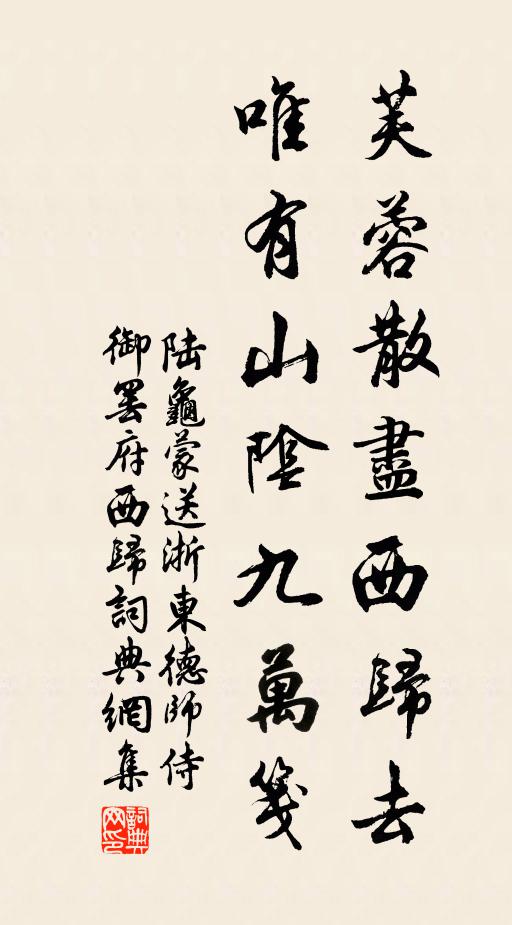 芙蓉散盡西歸去
唯有山陰九萬箋
陸龜蒙送浙東德師侍
御罷府西歸詞典網集
詞典网印